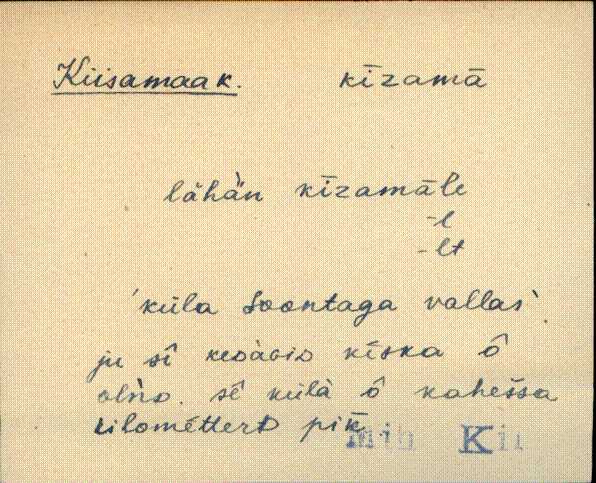 Kiisamaa k. kīzamā
lähän kīzamāle
-l
-lt
'küla Soontaga vallas'.
ju sî kīska ô
sê külä ô kahessa
kilométterD piḱ
Mih Kil